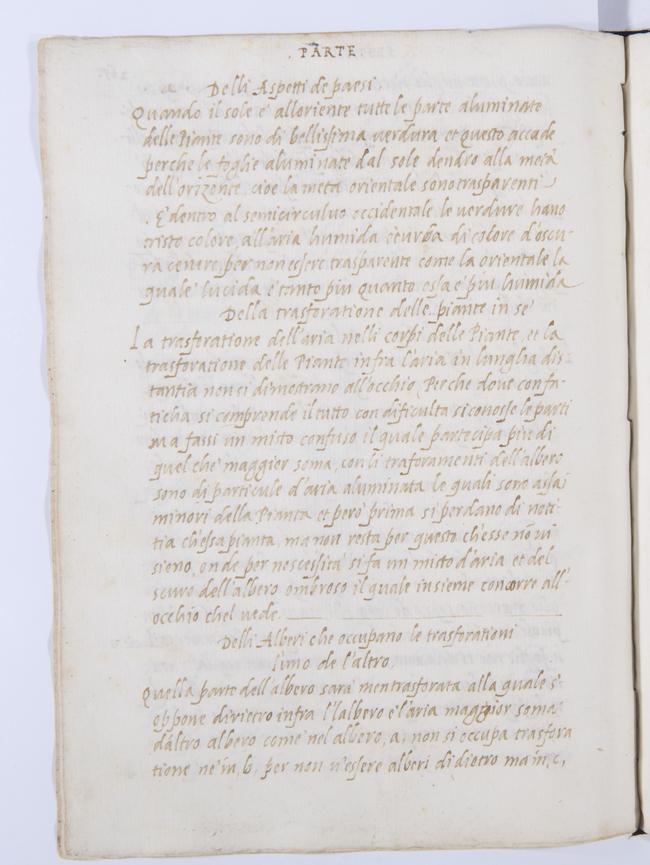 PARTE
Delli Aspetti de paesi.
Quando il sole e' all'oriente tutte le parte aluminate
delle Piante sono di bellissima verdura et questo accade
perche le foglie aluminate dal sole dendro alla metà
dell'orizonte, cioe la meta orientale sono trasparenti
. E' dentro al semicirculuo occidentale le verdure hano
tristo colore, all'aria humida e di colore d'oscu-
ra cenere, per non essere trasparente come la orientale la
quale lucida e tanto piu quanto essa e' piu humida
Della trasforatione delle piante in se
La trasforatione dell'aria nelli corpi delle Piante, et la
trasforatione delle Piante infra l'aria in lunglia dis
tantia non si dimostrano all'occhio, Perche doue con fa-
ticha si comprende il tutto con dificulta si conosse le parti
ma fassi un misto confuso il quale partecipa piu di
quel che maggior soma, con li traforamenti dell'albero
sono di particule d'aria aluminata le quali sono assai
minori della Pianta et pero prima si perdano di noti-
tia chessa pianta, ma non resta per questo ch'esse nō ui
sieno, onde per nescessità si fa un misto d'aria et del
scuro dell'albero ombroso il quale insieme concorre all'
occhio chel vede.
Delli Alberi che occupano le trasforationi
l'uno de l'altro.
Quella parte dell'albero sara men trasforata alla quale s'
oppone dirietro infra l'lalbero e l'aria maggior soma
d'altro albero come nel albero, a, non si occupa trasfora
tione ne in, b, per non u'essere alberi di dietro ma in, c,